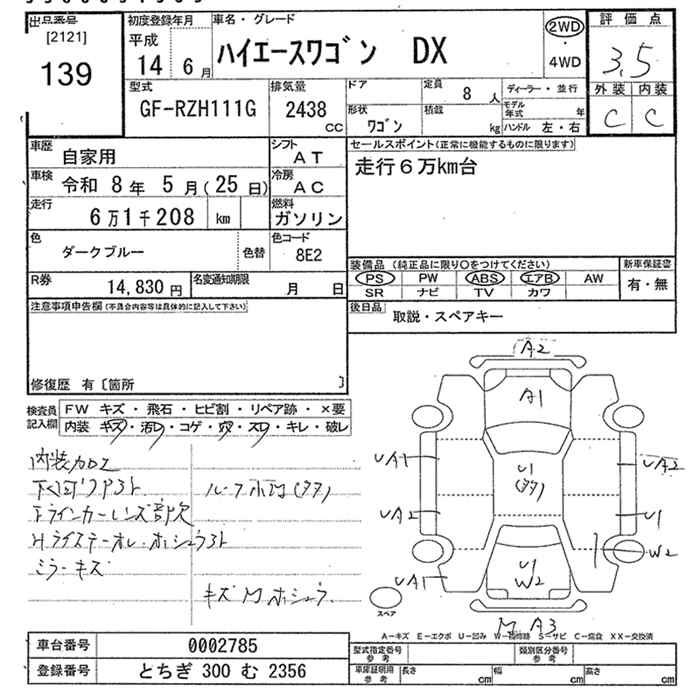 出品番号
[2121]
139
初度登録年月
平成
14 6月
車名・グレード
ハイエースワゴン DX
2WD
・
4WD
評価点
3,5
外装 内装
C C
型式
GF-RZH111G
排気量
2438
CC
ドア
形状
ワゴン
定員
8人
積載
kg
ディーラー・並行
モデル年式 年
ハンドル 左・右
車歴
自家用
シフト
AT
車検
令和 8年 5月(25日)
冷房
AC
走行
6万1千208 km
燃料
ガソリン
色
ダークブルー
色替
色コード
8E2
R券
14,830円
名変通知期限
月 日
セールスポイント(正常に機能するものに限ります)
走行6万km台
装備品(純正品に限り○をつけてください)
PS PW ABS エアB AW
SR ナビ TV カワ
新車保証書
有・無
後日品
取説・スペアキー
注意事項申告欄(不具合内容等は具体的に記入して下さい)
修復歴 有〔箇所 〕
検査員
記入欄
FW キズ・飛石・ヒビ割・リペア跡・×要
内装 キズ・汚レ・コゲ・穴・スレ・キレ・破レ
内装加工
下回リサビ
ミラーキズ
A2
A1
UA1
UA2
U1
(タタ)
UA2
U1
W2
UA1
U1
W2
スペア
M A3
A-キズ E-エクボ U-凹み W-補修跡 S-サビ C-腐食 XX-交換済
車台番号
0002785
登録番号
とちぎ 300 む 2356
型式指定番号
参考
類別区分番号
参考
車庫証明用
参考
長さ cm
幅 cm
高さ cm